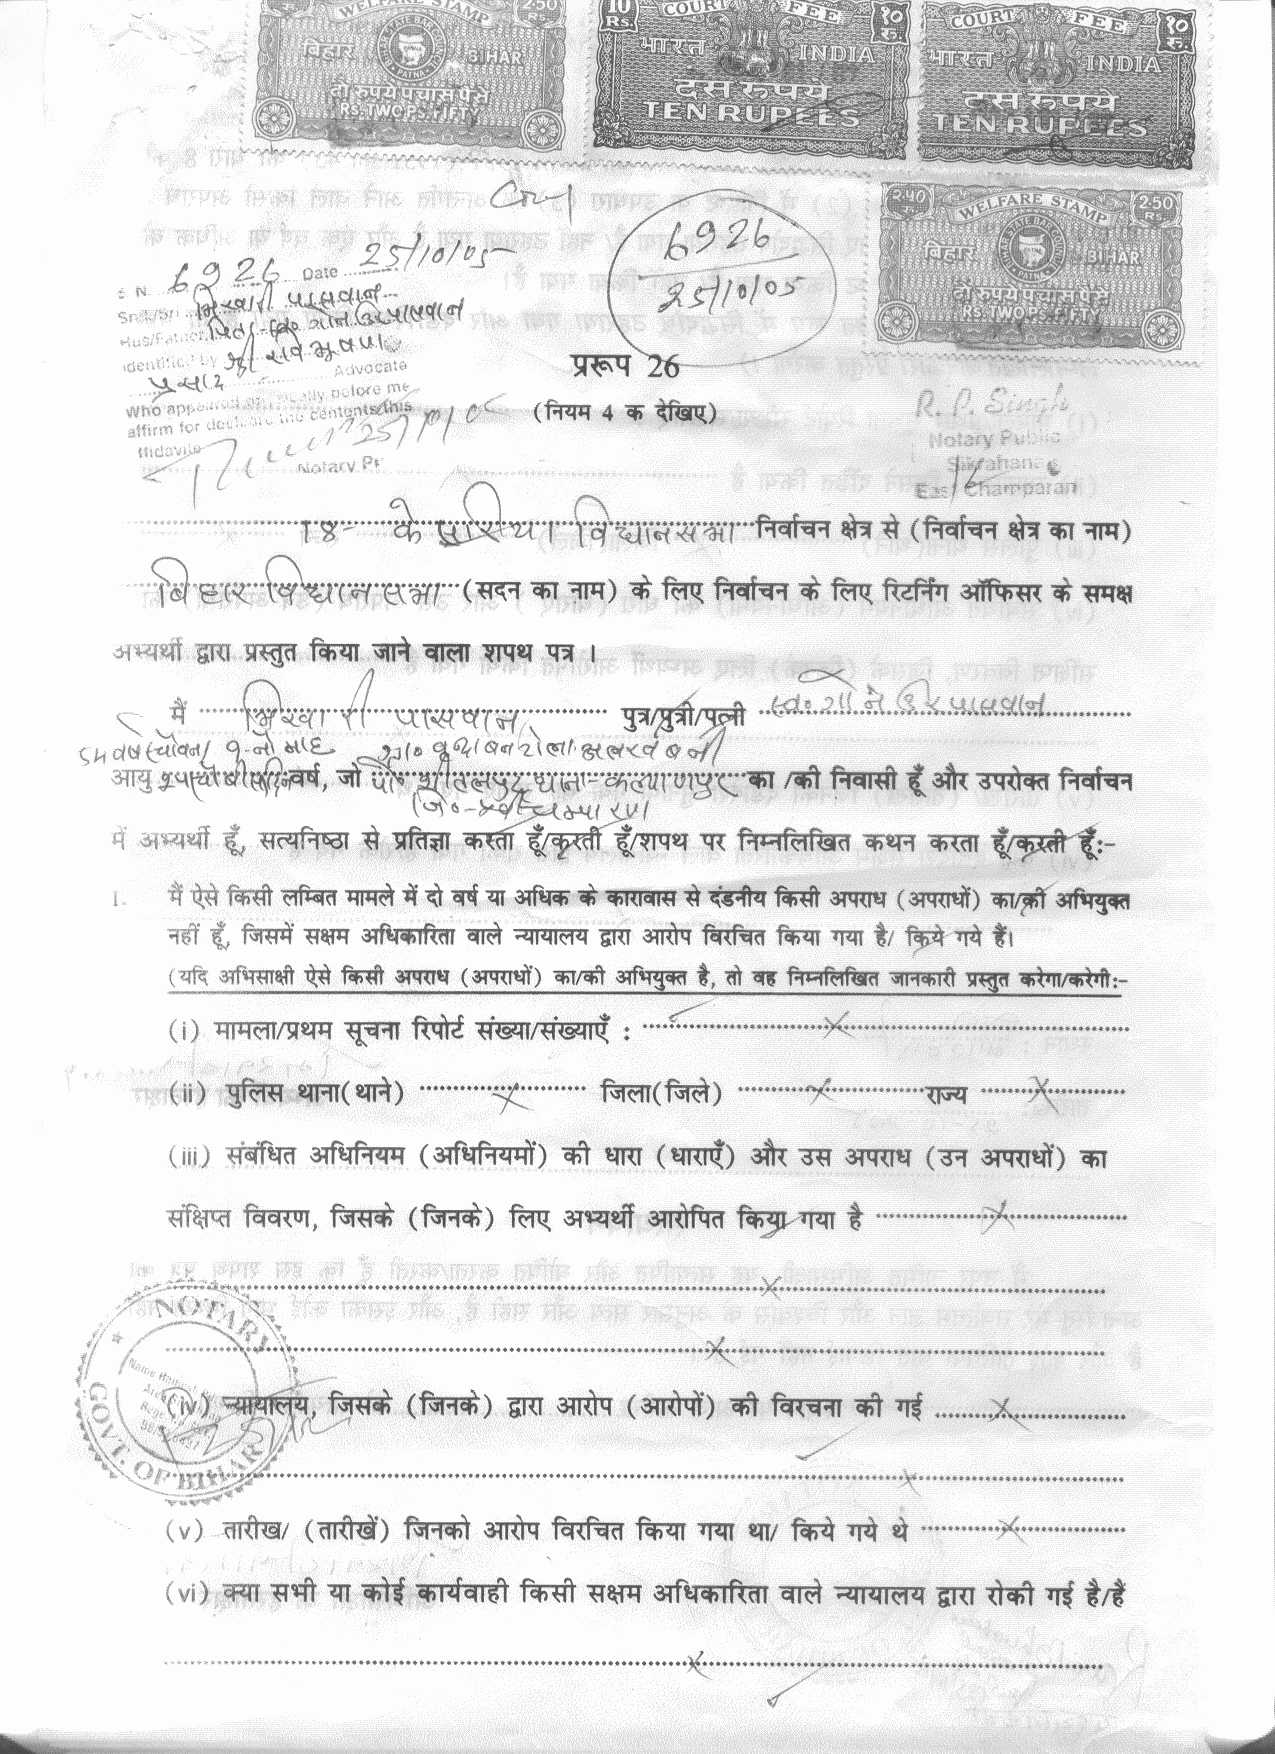 WELFARE STAMP 2.50 Rs.
बिहार BIHAR
दो रुपये पचास पैसे
RS. TWO PS. FIFTY
10 Rs. COURT FEE १० रु.
भारत INDIA
दस रुपये
TEN RUPEES
COURT FEE १० रु.
भारत INDIA
दस रुपये
TEN RUPEES
2.40 WELFARE STAMP 2.50 Rs.
बिहार BIHAR
दो रुपये पचास पैसे
RS. TWO PS. FIFTY
6926
25/10/05
S N 6926 Date 25/10/05
भिखारी पासवान
Identified by श्री
प्रसाद Advocate
Who appeared
affirm for declare the contents this
25/10/05
Notary
प्ररूप 26
(नियम 4 क देखिए)
R. P. Singh
Notary Public
Sikrahana
East Champaran
18- केसरिया विधानसभा निर्वाचन क्षेत्र से (निर्वाचन क्षेत्र का नाम)
बिहार विधान सभा (सदन का नाम) के लिए निर्वाचन के लिए रिटर्निंग ऑफिसर के समक्ष
अभ्यर्थी द्वारा प्रस्तुत किया जाने वाला शपथ पत्र ।
मैं भिखारी पासवान पुत्र/पुत्री/पत्नी स्व० पासवान
आयु वर्ष, जो पो० शीतलपुर थाना-कल्याणपुर का /की निवासी हूँ और उपरोक्त निर्वाचन
जि०-पूर्वी चम्पारण
में अभ्यर्थी हूँ, सत्यनिष्ठा से प्रतिज्ञा करता हूँ/करती हूँ/शपथ पर निम्नलिखित कथन करता हूँ/करती हूँ:-
1. मैं ऐसे किसी लम्बित मामले में दो वर्ष या अधिक के कारावास से दंडनीय किसी अपराध (अपराधों) का/की अभियुक्त
नहीं हूँ, जिसमें सक्षम अधिकारिता वाले न्यायालय द्वारा आरोप विरचित किया गया है/ किये गये हैं।
(यदि अभिसाक्षी ऐसे किसी अपराध (अपराधों) का/की अभियुक्त है, तो वह निम्नलिखित जानकारी प्रस्तुत करेगा/करेगी:-
(i) मामला/प्रथम सूचना रिपोर्ट संख्या/संख्याएँ : X
(ii) पुलिस थाना(थाने) X जिला(जिले) X राज्य X
(iii) संबंधित अधिनियम (अधिनियमों) की धारा (धाराएँ) और उस अपराध (उन अपराधों) का
संक्षिप्त विवरण, जिसके (जिनके) लिए अभ्यर्थी आरोपित किया गया है X
X
X
NOTARY
GOVT. OF BIHAR
(iv) न्यायालय, जिसके (जिनके) द्वारा आरोप (आरोपों) की विरचना की गई X
X
(v) तारीख/ (तारीखें) जिनको आरोप विरचित किया गया था/ किये गये थे X
(vi) क्या सभी या कोई कार्यवाही किसी सक्षम अधिकारिता वाले न्यायालय द्वारा रोकी गई है/हैं
X